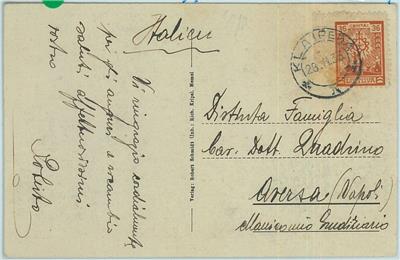 Italien
Vi ringrazio cordialmente
per gli auguri e ricambio
saluti affettuosissimi
vostro
Roberto
Verlag: Robert Schmidt (Inh.: Rich. Krips) Memel
KLAIPEDA
LIETUVA
Distinta Famiglia
Cav. Dott. Quadrino
Aversa (Napoli)
Manicomio Giudiziario